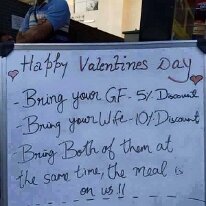 Happy Valentines Day
- Bring your GF - 5% Discount
- Bring your Wife - 10% Discount
- Bring Both of them at
the same time, the meal is
on us !!